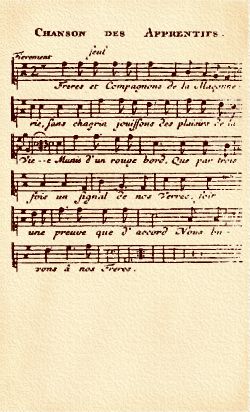 CHANSON DES APPRENTIFS.
Fierement seul
Freres et Compagnons de la Maçonne-
rie, sans chagrin jouissons des plaisirs de la
Vie -- e Munis d'un rouge bord, Que par trois
fois un signal de nos Verres, soit
une preuve que d'accord Nous bu-
vons à nos Freres.